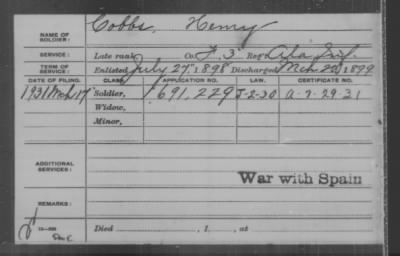 NAME OF SOLDIER: Cobbs, Henry
SERVICE: Late rank Co. F. 3" Reg't Ala Inf.
TERM OF SERVICE: Enlisted July 27" 1898 Discharged Mch 20, 1899
DATE OF FILING. CLASS. APPLICATION NO. LAW. CERTIFICATE NO.
1931 Mch 17" Soldier, 1,691,229 J-2-30 A-9-29-31
Widow,
Minor,
ADDITIONAL SERVICES:
War with Spain
REMARKS:
Died , 1 , at